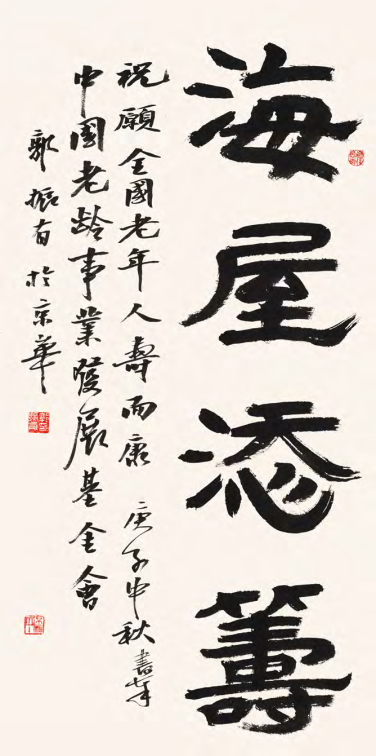 海屋添籌
祝願全國老年人壽而康 庚子中秋書奉
中國老龄事業發展基金會
郭振有於京華